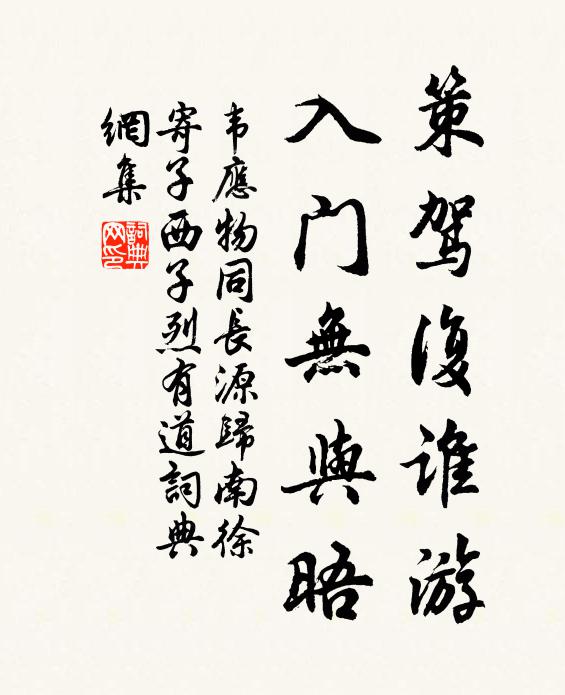 策駕復誰游
入门無與晤
韦應物同長源歸南徐
寄子西子烈有道詞典
網集
詞典
网印